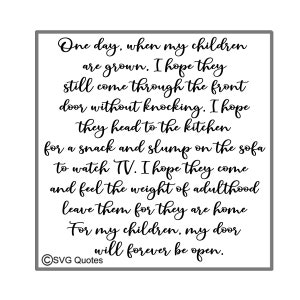 One day, when my children
are grown. I hope they
still come through the front
door without knocking. I hope
they head to the kitchen
for a snack and slump on the sofa
to watch TV. I hope they come
and feel the weight of adulthood
leave them for they are home
For my children, my door
will forever be open.
©SVG Quotes